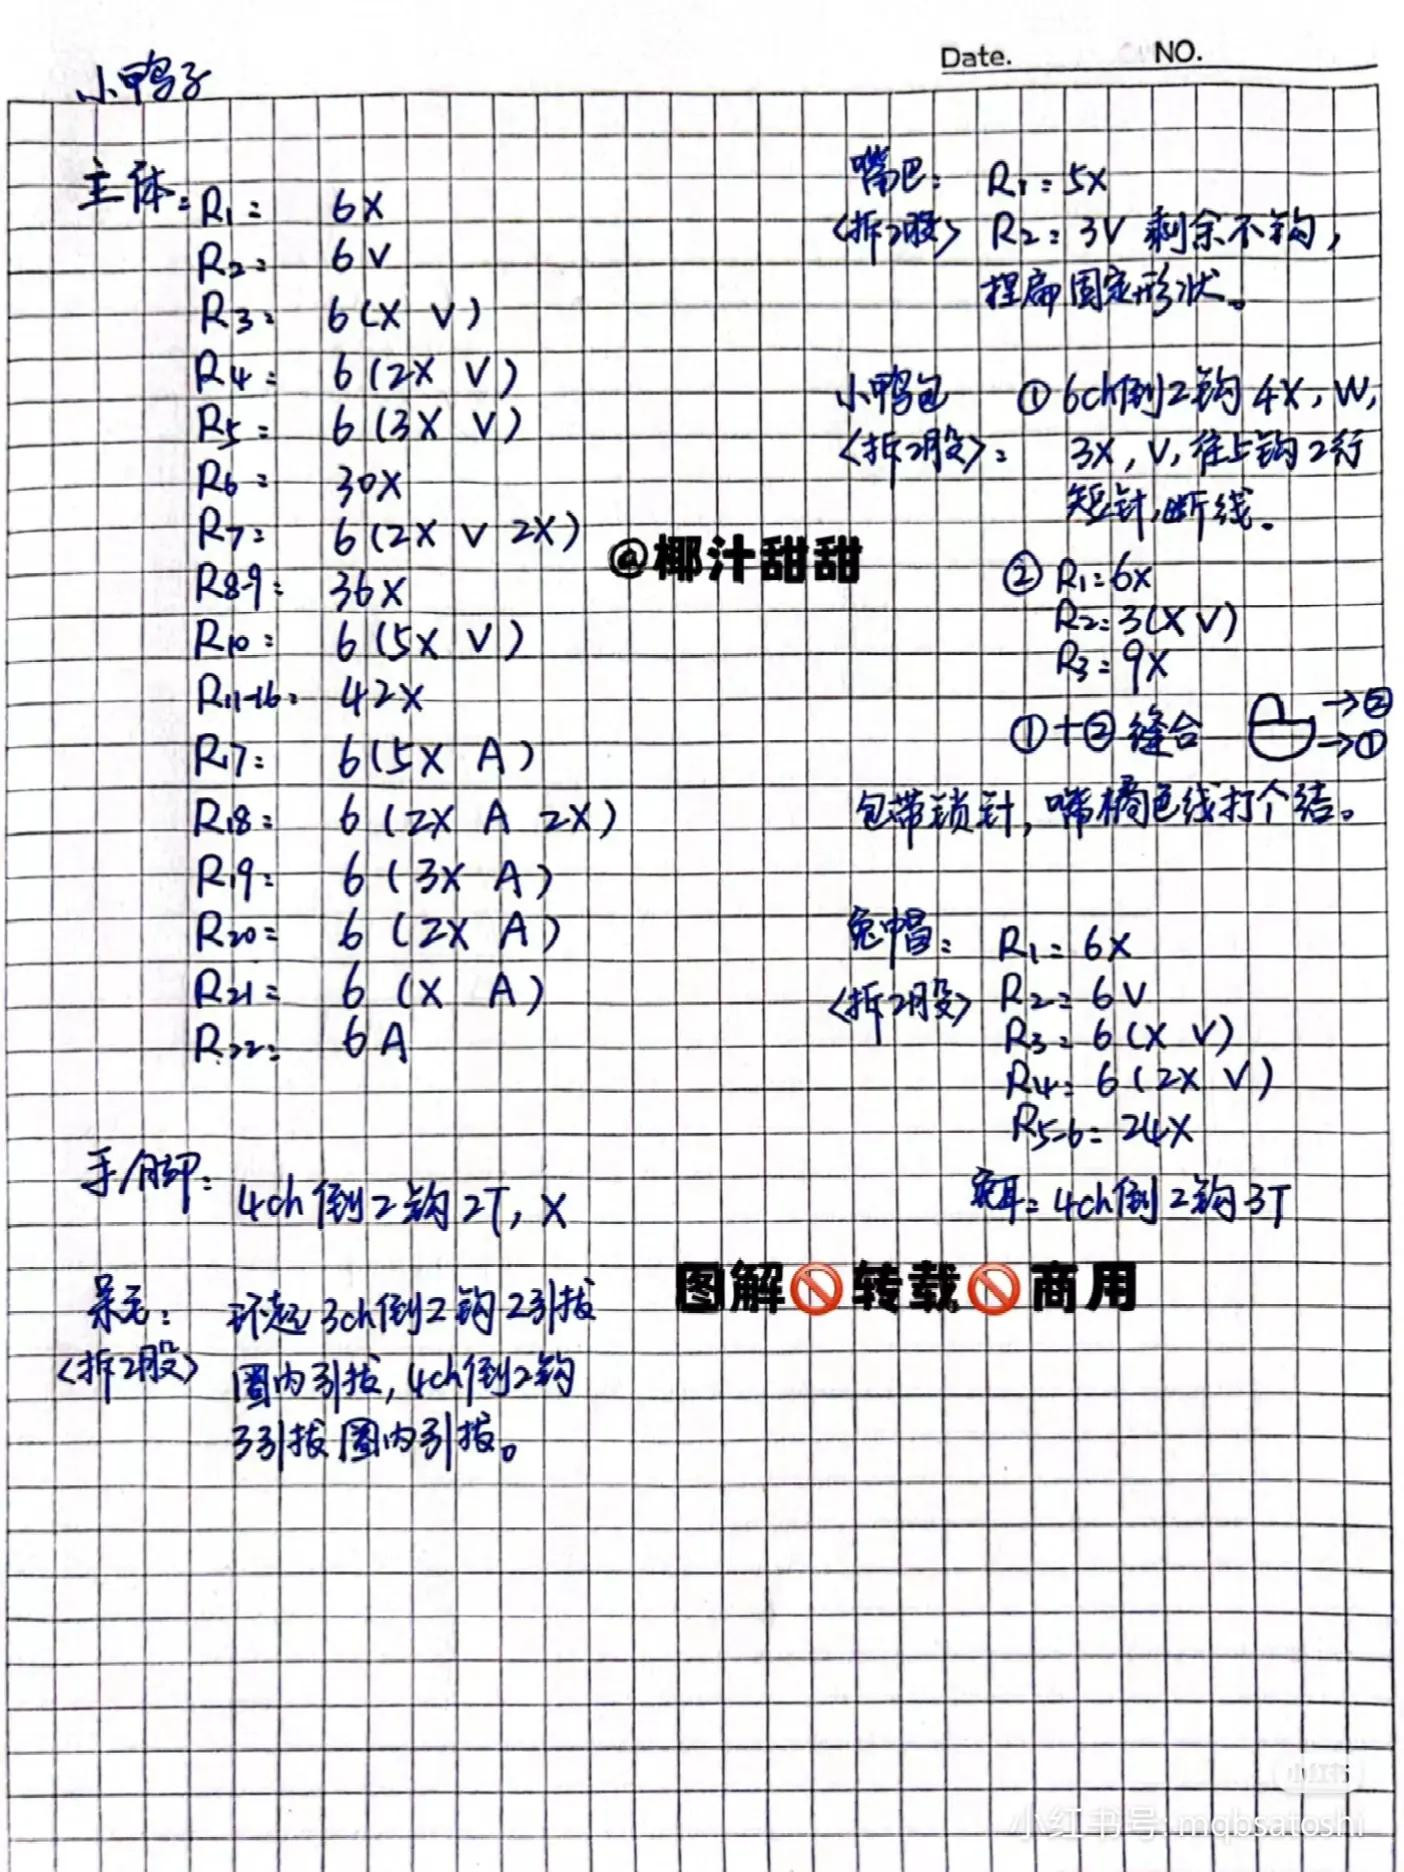 Date. NO.
小鸭子
主体: R1: 6X
R2: 6V
R3: 6(X V)
R4: 6(2X V)
R5: 6(3X V)
R6: 30X
R7: 6(2X V 2X)
R8-9: 36X
R10: 6(5X V)
R11-16: 42X
R17: 6(5X A)
R18: 6(2X A 2X)
R19: 6(3X A)
R20: 6(2X A)
R21: 6(X A)
R22: 6A
手/脚: 4ch倒2钩2T, X
呆毛: 环起3ch倒2钩2引拔
<拆2股> 圈内引拔, 4ch倒2钩
3引拔圈内引拔。
嘴巴: R1: 5X
<拆2股> R2: 3V 剩余不钩,
捏扁固定形状。
小鸭包 ① 6ch倒2钩4X, W,
<拆2股>: 3X, V, 往上钩2行
短针,断线。
② R1=6X
R2=3(X V)
R3=9X
①+②缝合 →②
→①
包带锁针, 嘴橘色线打个结。
兔帽: R1=6X
<拆2股> R2=6V
R3=6(X V)
R4=6(2X V)
R5-6=24X
兔耳=4ch倒2钩3T
@椰汁甜甜
图解🚫转载🚫商用
小红书号: mqbsatoshi